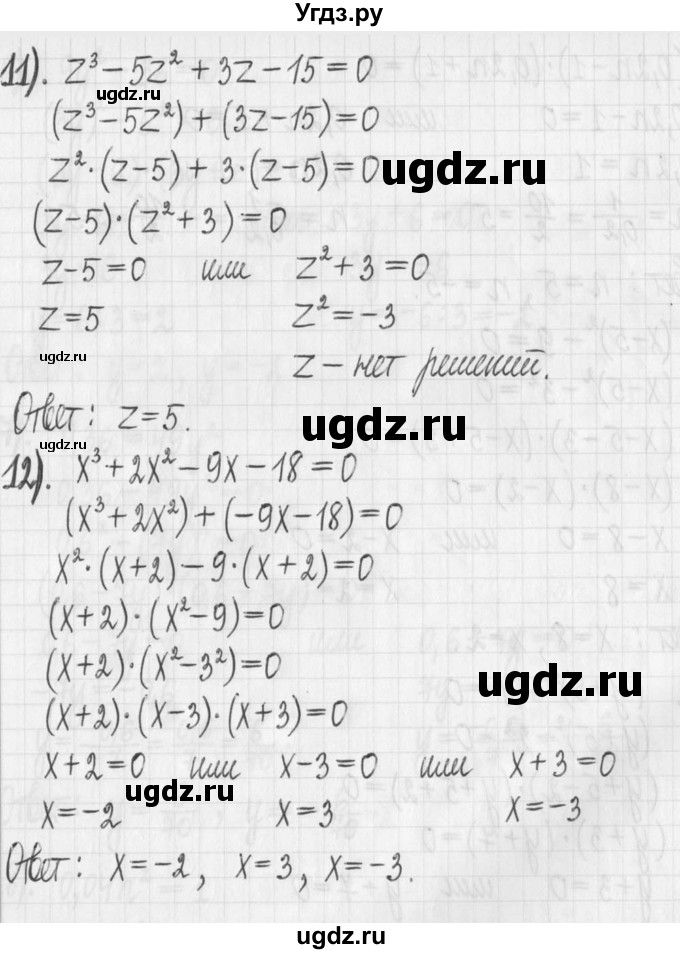 Угдз.ру
11). z³ – 5z² + 3z – 15 = 0
ugdz.ru
(z³ – 5z²) + (3z – 15) = 0
z² · (z – 5) + 3 · (z – 5) = 0
ugdz.ru
(z – 5) · (z² + 3) = 0
z – 5 = 0 или z² + 3 = 0
z = 5 z² = –3
ugdz.ru
z – нет решений.
Ответ: z = 5.
ugdz.ru
ugdz.ru
12). x³ + 2x² – 9x – 18 = 0
(x³ + 2x²) + (–9x – 18) = 0
x² · (x + 2) – 9 · (x + 2) = 0
(x + 2) · (x² – 9) = 0
(x + 2) · (x² – 3²) = 0
ugdz.ru
(x + 2) · (x – 3) · (x + 3) = 0
x + 2 = 0 или x – 3 = 0 или x + 3 = 0
ugdz.ru
x = –2 x = 3 x = –3
Ответ: x = –2, x = 3, x = –3.
ugdz.ru